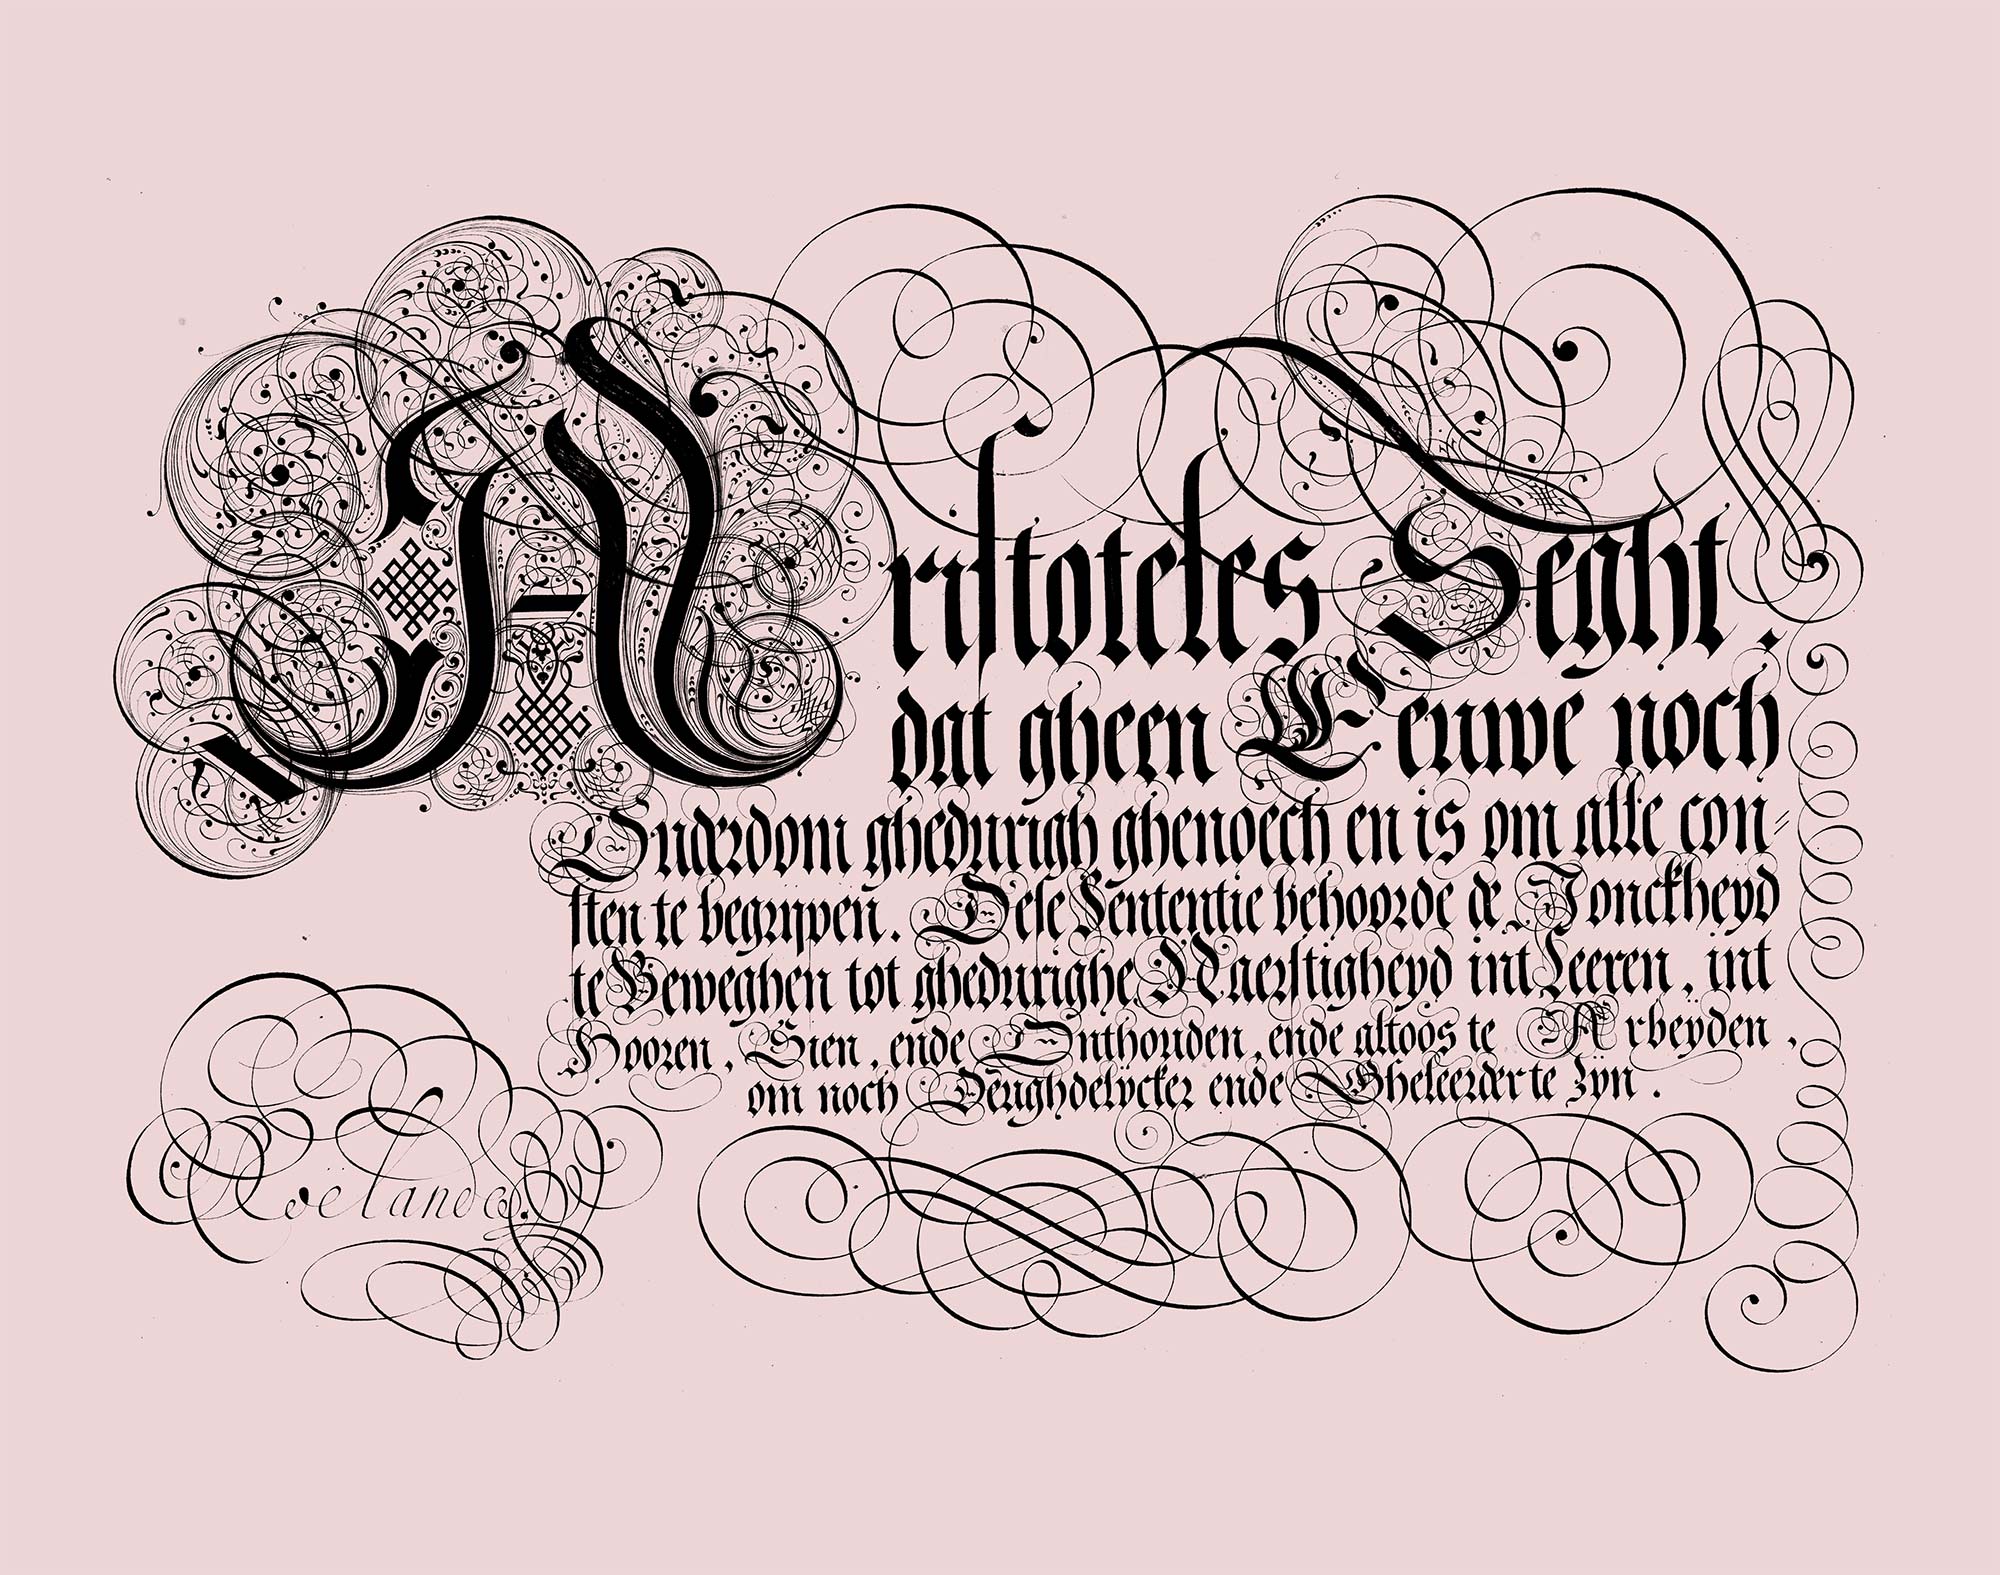 Aristoteles Seght,
dat gheen Eeuwe noch
Ouderdom ghedurigh ghenoech en is om alle con-
sten te begrijpen. Dese Sententie behoorde de Jonckheyd
te Beweghen tot ghedurighe Naerstigheyd int Leeren, int
Hooren, Sien, ende Onthouden, ende altoos te Arbeyden,
om noch Deughdelÿcker ende Gheleerder te zÿn.
Roelands.